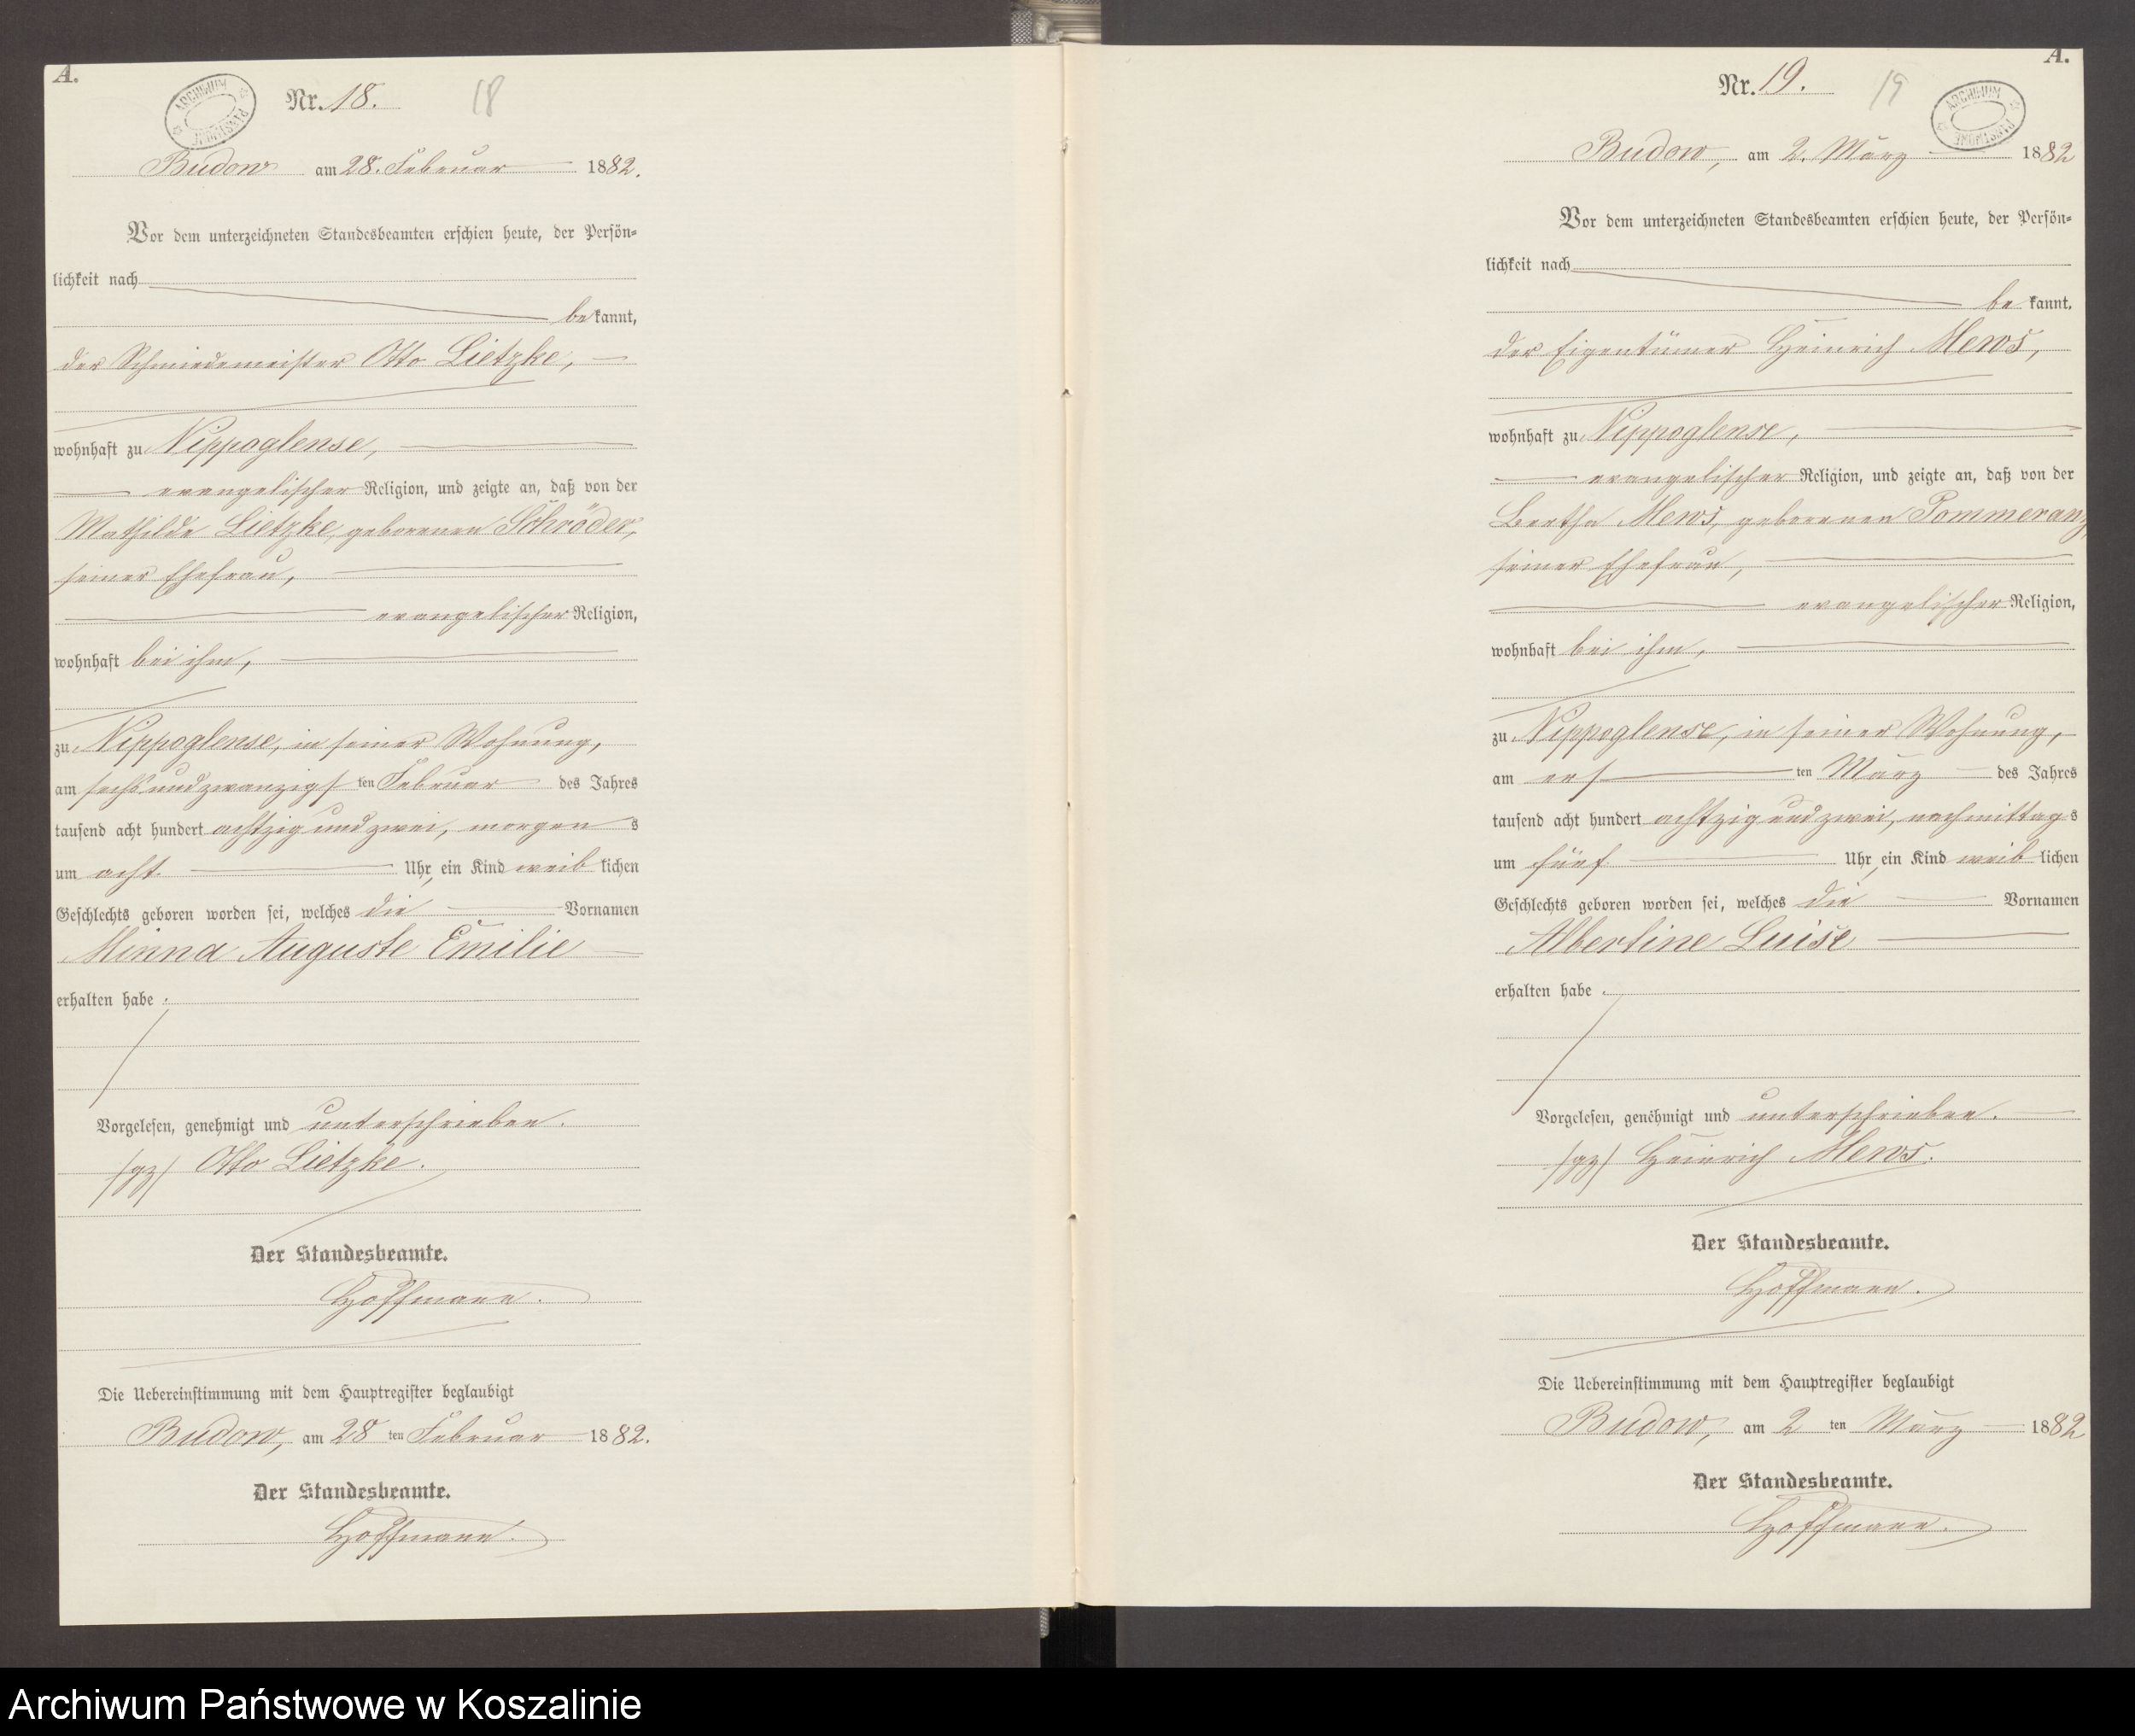 A.
ARCHIWUM PAŃSTWOWE
Nr. 18. 18
Budow am 28. Februar 1882.
Vor dem unterzeichneten Standesbeamten erschien heute, der Persön-
lichkeit nach
be kannt,
der Schmiedemeister Otto Lietzke,
wohnhaft zu Nippoglense,
evangelischer Religion, und zeigte an, daß von der
Mathilde Lietzke, geborenen Schröder,
seiner Ehefrau,
evangelischer Religion,
wohnhaft bei ihm,
zu Nippoglense, in seiner Wohnung,
am sechsundzwanzigsten Februar des Jahres
tausend acht hundert achtzig und zwei, morgens
um acht Uhr, ein Kind weiblichen
Geschlechts geboren worden sei, welches die Vornamen
Minna Auguste Emilie
erhalten habe.
Vorgelesen, genehmigt und unterschrieben.
/gz/ Otto Lietzke.
Der Standesbeamte.
Hoffmann.
Die Uebereinstimmung mit dem Hauptregister beglaubigt
Budow, am 28 ten Februar 1882.
Der Standesbeamte.
Hoffmann.
A.
Nr. 19. 19
ARCHIWUM PAŃSTWOWE
Budow, am 2. März 1882
Vor dem unterzeichneten Standesbeamten erschien heute, der Persön-
lichkeit nach
be kannt,
der Eigentümer Heinrich Mews,
wohnhaft zu Nippoglense,
evangelischer Religion, und zeigte an, daß von der
Bertha Mews, geborenen Pommeranz,
seiner Ehefrau,
evangelischer Religion,
wohnhaft bei ihm,
zu Nippoglense, in seiner Wohnung,
am ersten März des Jahres
tausend acht hundert achtzig und zwei, nachmittags
um fünf Uhr, ein Kind weiblichen
Geschlechts geboren worden sei, welches die Vornamen
Albertine Luise
erhalten habe.
Vorgelesen, genehmigt und unterschrieben.
/gz/ Heinrich Mews.
Der Standesbeamte.
Hoffmann.
Die Uebereinstimmung mit dem Hauptregister beglaubigt
Budow, am 2 ten März 1882
Der Standesbeamte.
Hoffmann.
Archiwum Państwowe w Koszalinie